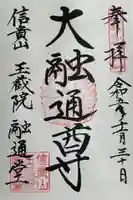 奉拝
令和五年十二月三十日
大融通尊
信貴山
玉蔵院
融通堂